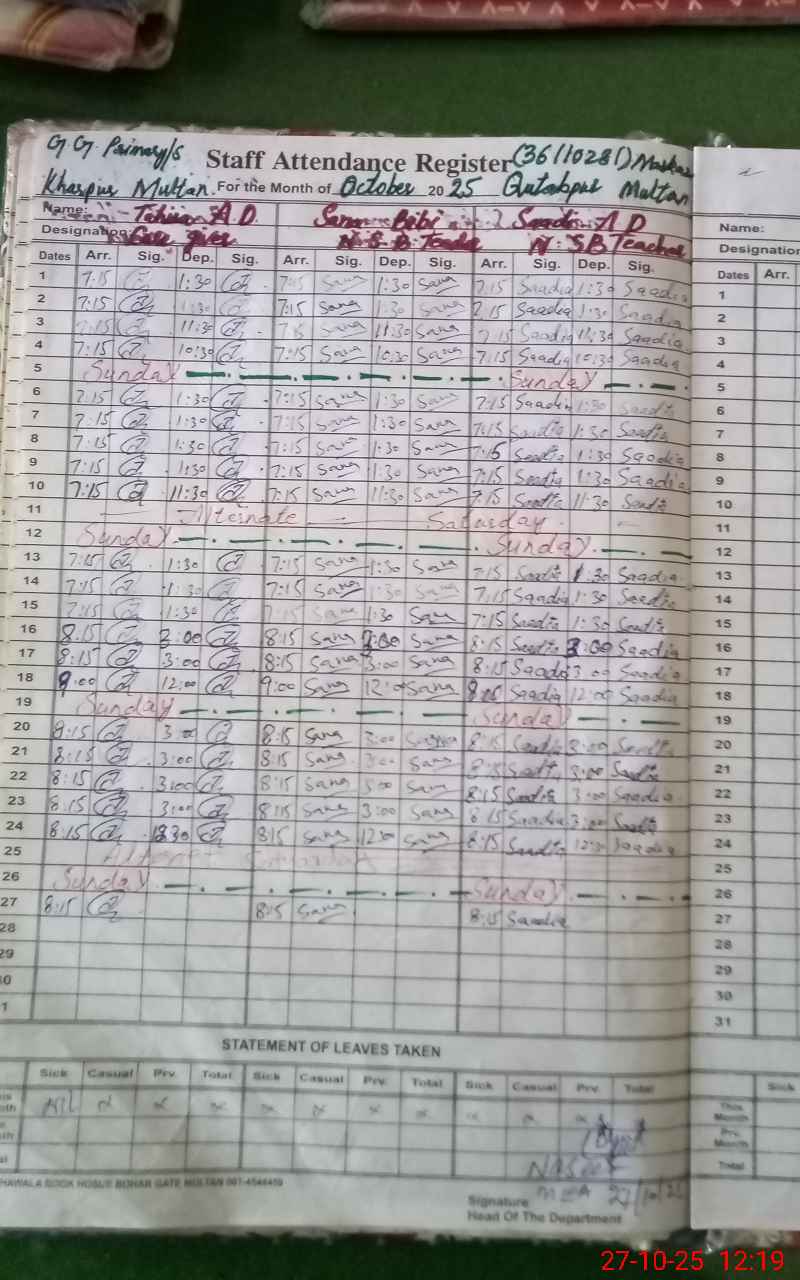 G.G. Primary/S Staff Attendance Register (36110281) Markaz
Khanpur Multan For the Month of October 2025 Qutabpur Multan
Name: Tahira A.D. Sana Bibi Saadia A.D Name:
Designation: Care giver N.S.B. Teacher N.S.B Teacher Designation
Dates Arr. Sig. Dep. Sig. Arr. Sig. Dep. Sig. Arr. Sig. Dep. Sig. Dates Arr.
1 7:15 1:30 7:15 Sana 1:30 Sana 7:15 Saadia 1:30 Saadia 1
2 7:15 1:30 7:15 Sana 1:30 Sana 7:15 Saadia 1:30 Saadia 2
3 7:15 11:30 7:15 Sana 11:30 Sana 7:15 Saadia 11:30 Saadia 3
4 7:15 10:30 7:15 Sana 10:30 Sana 7:15 Saadia 10:30 Saadia 4
5 Sunday Sunday 5
6 7:15 1:30 7:15 Sana 1:30 Sana 7:15 Saadia 1:30 Saadia 6
7 7:15 1:30 7:15 Sana 1:30 Sana 7:15 Saadia 1:30 Saadia 7
8 7:15 1:30 7:15 Sana 1:30 Sana 7:15 Saadia 1:30 Saadia 8
9 7:15 1:30 7:15 Sana 1:30 Sana 7:15 Saadia 1:30 Saadia 9
10 7:15 11:30 7:15 Sana 11:30 Sana 7:15 Saadia 11:30 Saadia 10
11 Alternate Saturday 11
12 Sunday Sunday 12
13 7:15 1:30 7:15 Sana 1:30 Sana 7:15 Saadia 1:30 Saadia 13
14 7:15 1:30 7:15 Sana 1:30 Sana 7:15 Saadia 1:30 Saadia 14
15 7:15 1:30 7:15 Sana 1:30 Sana 7:15 Saadia 1:30 Saadia 15
16 8:15 3:00 8:15 Sana 3:00 Sana 8:15 Saadia 3:00 Saadia 16
17 8:15 3:00 8:15 Sana 3:00 Sana 8:15 Saadia 3:00 Saadia 17
18 9:00 12:00 9:00 Sana 12:00 Sana Saadia 12:00 Saadia 18
19 Sunday Sunday 19
20 8:15 3:00 8:15 Sana 3:00 Sana 8:15 Saadia 3:00 Saadia 20
21 8:15 3:00 8:15 Sana 3:00 Sana 8:15 Saadia 3:00 Saadia 21
22 8:15 3:00 8:15 Sana 3:00 Sana 8:15 Saadia 3:00 Saadia 22
23 8:15 3:00 8:15 Sana 3:00 Sana 8:15 Saadia 3:00 Saadia 23
24 8:15 8:15 Sana 12:30 Sana 8:15 Saadia 12:30 Saadia 24
25 25
26 Sunday Sunday 26
27 8:15 8:15 Sana 8:15 Saadia 27
28 28
29 29
30
31
STATEMENT OF LEAVES TAKEN
Sick Casual Prv. Total Sick Casual Prv. Total Sick Casual Prv. Total Sick
Nil This Month
Prv. Month
Total
MEA 27/10/25
BOOK HOSUE BOHAR GATE MULTAN
Signature
Head Of The Department
27-10-25 12:19